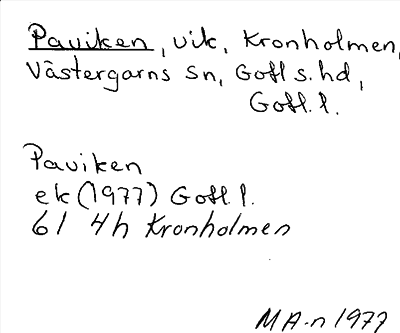 Paviken, vik, Kronholmen,
Västergarns sn, Gotl s. hd,
Gotl. l.
Paviken
ek (1977) Gotl. l.
6I 4h Kronholmen
MA-n 1977